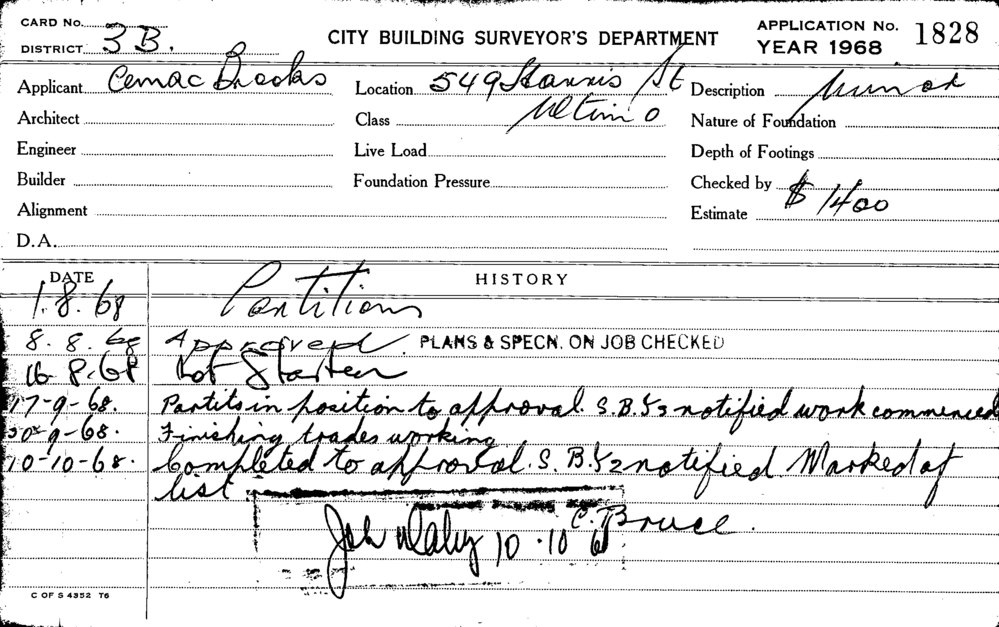 CARD No.
DISTRICT 3B.
CITY BUILDING SURVEYOR'S DEPARTMENT
APPLICATION No. 1828
YEAR 1968
Applicant Cemac Brooks
Location 549 Harris St
Description Minor
Architect
Class Ultimo
Nature of Foundation
Engineer
Live Load
Depth of Footings
Builder
Foundation Pressure
Checked by
Alignment
Estimate $1400
D.A.
DATE HISTORY
1.8.68 Partitions
8.8.68 Approved. PLANS & SPECN. ON JOB CHECKED
16-8-68 Not Started
17-9-68. Partits in position to approval. S.B.Y3 notified work commenced
30-9-68. Finishing trades working
10-10-68. Completed to approval. S.B.Y2 notified. Marked of
list.
C. Bruce.
10.10.6
C OF S 4352 T6